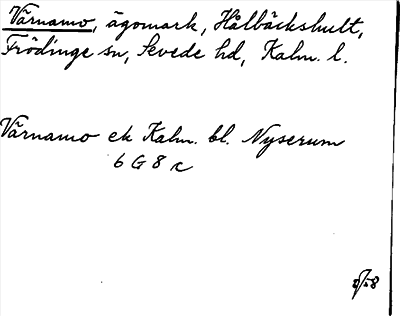 Värnamo, ägomark, Hälbäckshult,
Frödinge sn, Sevede hd, Kalm. l.
Värnamo ek Kalm. bl. Nyserum
6 G 8 c